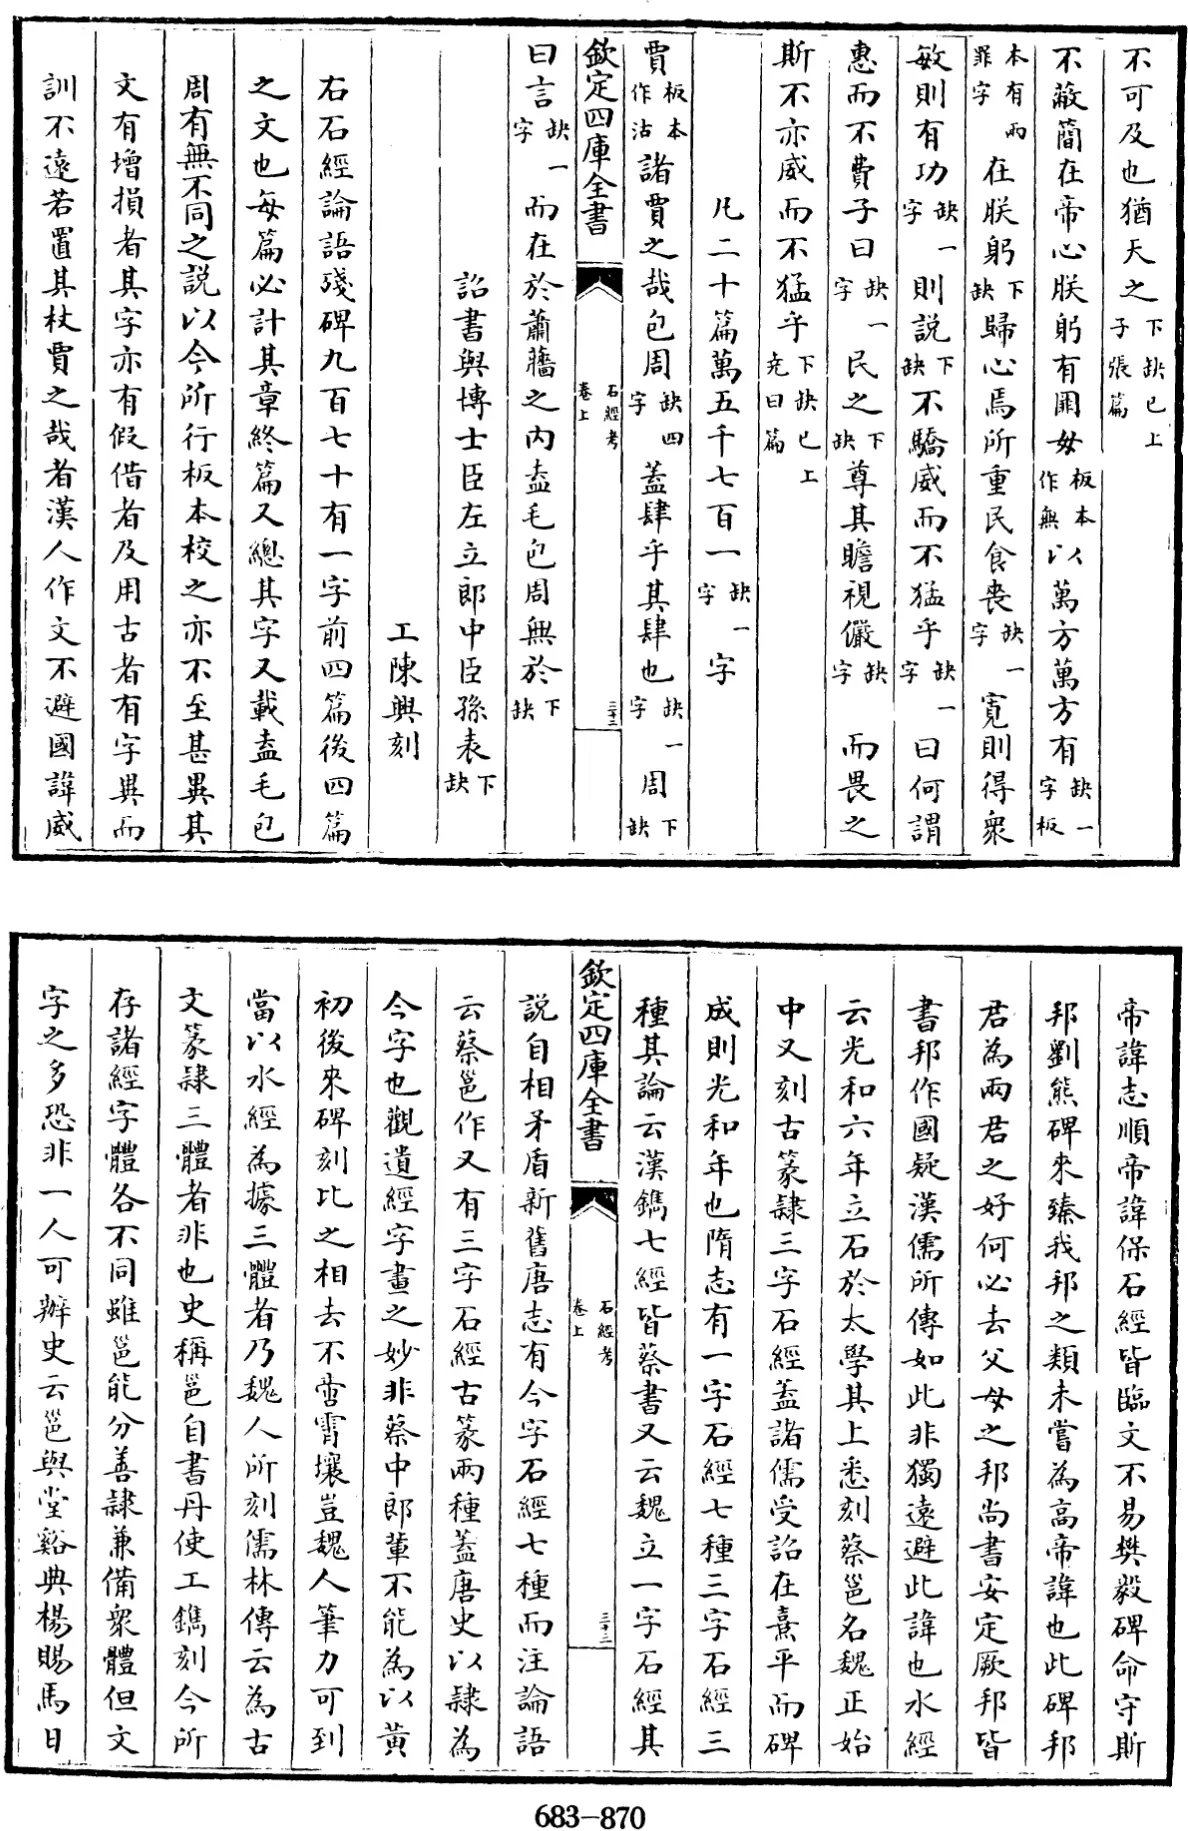 不可及也猶天之下缺已上子張篇
不蔽簡在帝心朕躬有罪毋板本作無以萬方萬方有缺一字板
本有兩罪字在朕躬下缺歸心焉所重民食喪缺一字寛則得衆
敏則有功缺一字則説下缺不驕威而不猛乎缺一字曰何謂
惠而不費子曰缺一字民之下缺尊其瞻視儼缺字而畏之
斯不亦威而不猛乎下缺已上尭曰篇
凡二十篇萬五千七百一缺一字字
賈板本作沽諸賈之哉包周缺四字蓋肆乎其肆也缺一字周下缺
欽定四庫全書
石經考
卷上
三十三
曰言缺一字而在於蕭牆之内盍毛包周無於下缺
詔書與博士臣左立郎中臣孫表下缺
工陳興刻
右石經論語殘碑九百七十有一字前四篇後四篇
之文也每篇必計其章終篇又總其字又載盍毛包
周有無不同之説以今所行板本校之亦不至甚異其
文有增損者其字亦有假借者及用古者有字異而
訓不遠若置其杖賈之哉者漢人作文不避國諱威
帝諱志順帝諱保石經皆臨文不易樊毅碑命守斯
邦劉熊碑來臻我邦之類未嘗為高帝諱也此碑邦
君為兩君之好何必去父母之邦尚書安定厥邦皆
書邦作國疑漢儒所傳如此非獨遠避此諱也水經
云光和六年立石於太學其上悉刻蔡邕名魏正始
中又刻古篆隷三字石經蓋諸儒受詔在熹平而碑
成則光和年也隋志有一字石經七種三字石經三
種其論云漢鐫七經皆蔡書又云魏立一字石經其
欽定四庫全書
石經考
卷上
三十三
説自相矛盾新舊唐志有今字石經七種而注論語
云蔡邕作又有三字石經古篆兩種蓋唐史以隷為
今字也觀遺經字畫之妙非蔡中郎輩不能為以黄
初後來碑刻比之相去不啻霄壤豈魏人筆力可到
當以水經為據三體者乃魏人所刻儒林傳云為古
文篆隷三體者非也史稱邕自書丹使工鐫刻今所
存諸經字體各不同雖邕能分善隷兼備衆體但文
字之多恐非一人可辦史云邕與堂谿典楊賜馬日
683-870